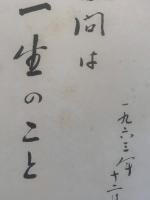 問は
一生のこと
一九六三年
十二月